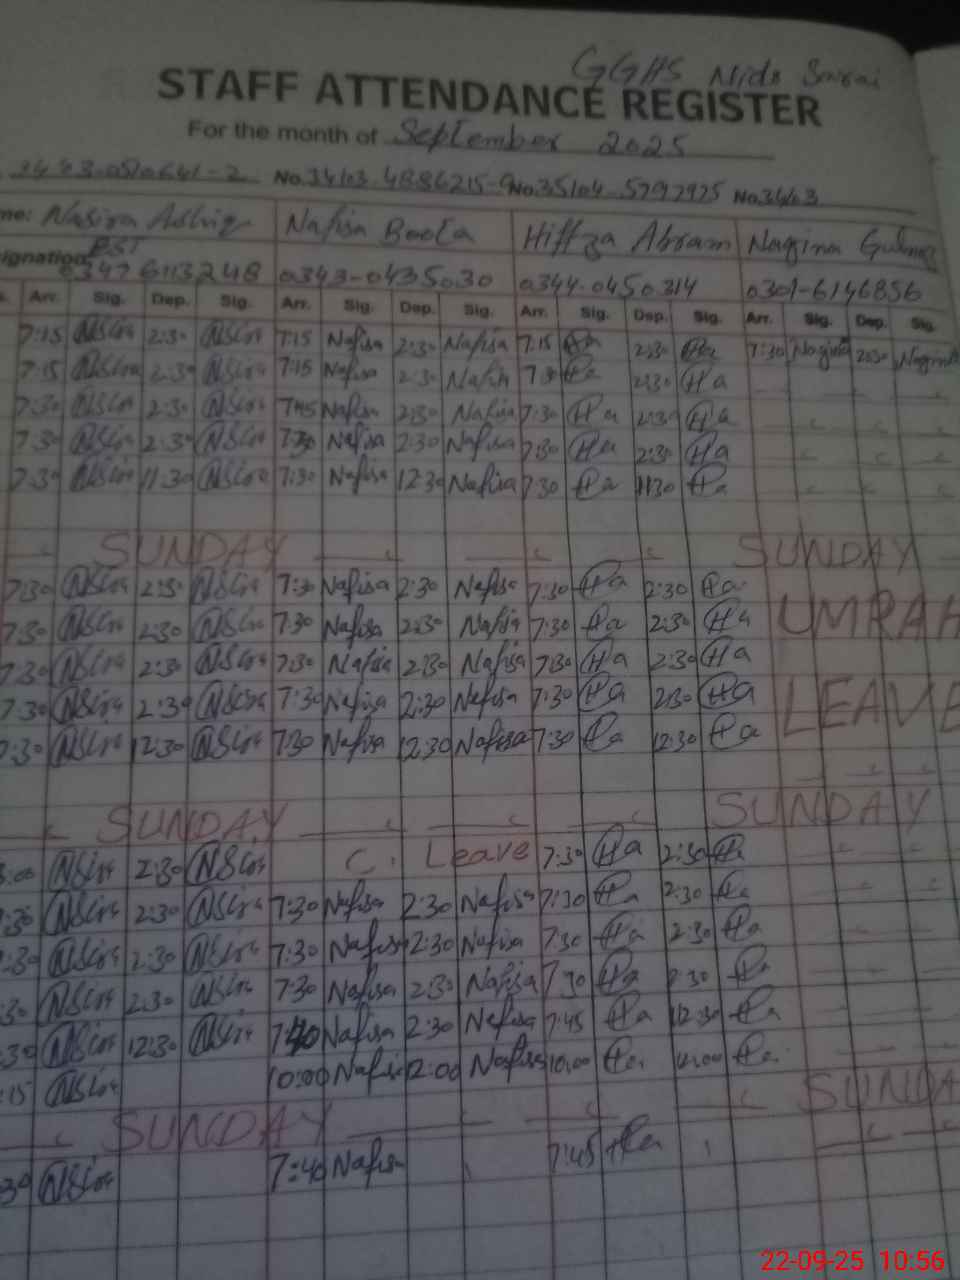 GGHS Nida Sarai
STAFF ATTENDANCE REGISTER
For the month of September 2025
3443-0510641-2 No.34103-4886215-9 No.35104-5792925 No.34103
me: Nasira Nafisa Boota Hiffza Akram Nagina
ignation PST
03476113248 0343-0435030 0344-0450314 0301-6146856
s. Arr. Sig. Dep. Sig. Arr. Sig. Dep. Sig. Arr. Sig. Dep. Sig. Arr. Sig. Dep. Sig.
7:15 NSira 2:30 NSira 7:15 Nafisa 2:30 Nafisa 7:15 Ha 2:30 Ha 7:30 Nagina 2:30 Nagina
7:15 NSira 2:30 NSira 7:15 Nafisa 2:30 Nafisa 7:30 Ha 2:30 Ha
7:30 NSira 2:30 NSira 7:45 Nafisa 2:30 Nafisa 7:30 Ha 2:30 Ha
7:30 NSira 2:30 NSira 7:30 Nafisa 2:30 Nafisa 7:30 Ha 2:30 Ha
7:30 NSira 11:30 NSira 7:30 Nafisa 12:30 Nafisa 7:30 Ha 11:30 Ha
SUNDAY SUNDAY
7:30 NSira 2:30 NSira 7:30 Nafisa 2:30 Nafisa 7:30 Ha 2:30 Ha
7:30 NSira 2:30 NSira 7:30 Nafisa 2:30 Nafisa 7:30 Ha 2:30 Ha UMRAH
7:30 NSira 2:30 NSira 7:30 Nafisa 2:30 Nafisa 7:30 Ha 2:30 Ha
7:30 NSira 2:30 NSira 7:30 Nafisa 2:30 Nafisa 7:30 Ha 2:30 Ha LEAVE
7:30 NSira 12:30 NSira 7:30 Nafisa 12:30 Nafisa 7:30 Ha 12:30 Ha
SUNDAY SUNDAY
:00 NSira 2:30 NSira C. Leave 7:30 Ha 2:30 Ha
:30 NSira 2:30 NSira 7:30 Nafisa 2:30 Nafisa 7:30 Ha 2:30 Ha
:30 NSira 2:30 NSira 7:30 Nafisa 2:30 Nafisa 7:30 Ha 2:30 Ha
:30 NSira 2:30 NSira 7:30 Nafisa 2:30 Nafisa 7:30 Ha 2:30 Ha
:30 NSira 12:30 NSira 7:40 Nafisa 2:30 Nafisa 7:45 Ha 12:30 Ha
:15 NSira 10:00 Nafisa 12:00 Nafisa 10:00 Ha 12:00 Ha
SUNDAY SUNDA
:30 NSira 7:40 Nafisa 7:45 Ha
22-09-25 10:56